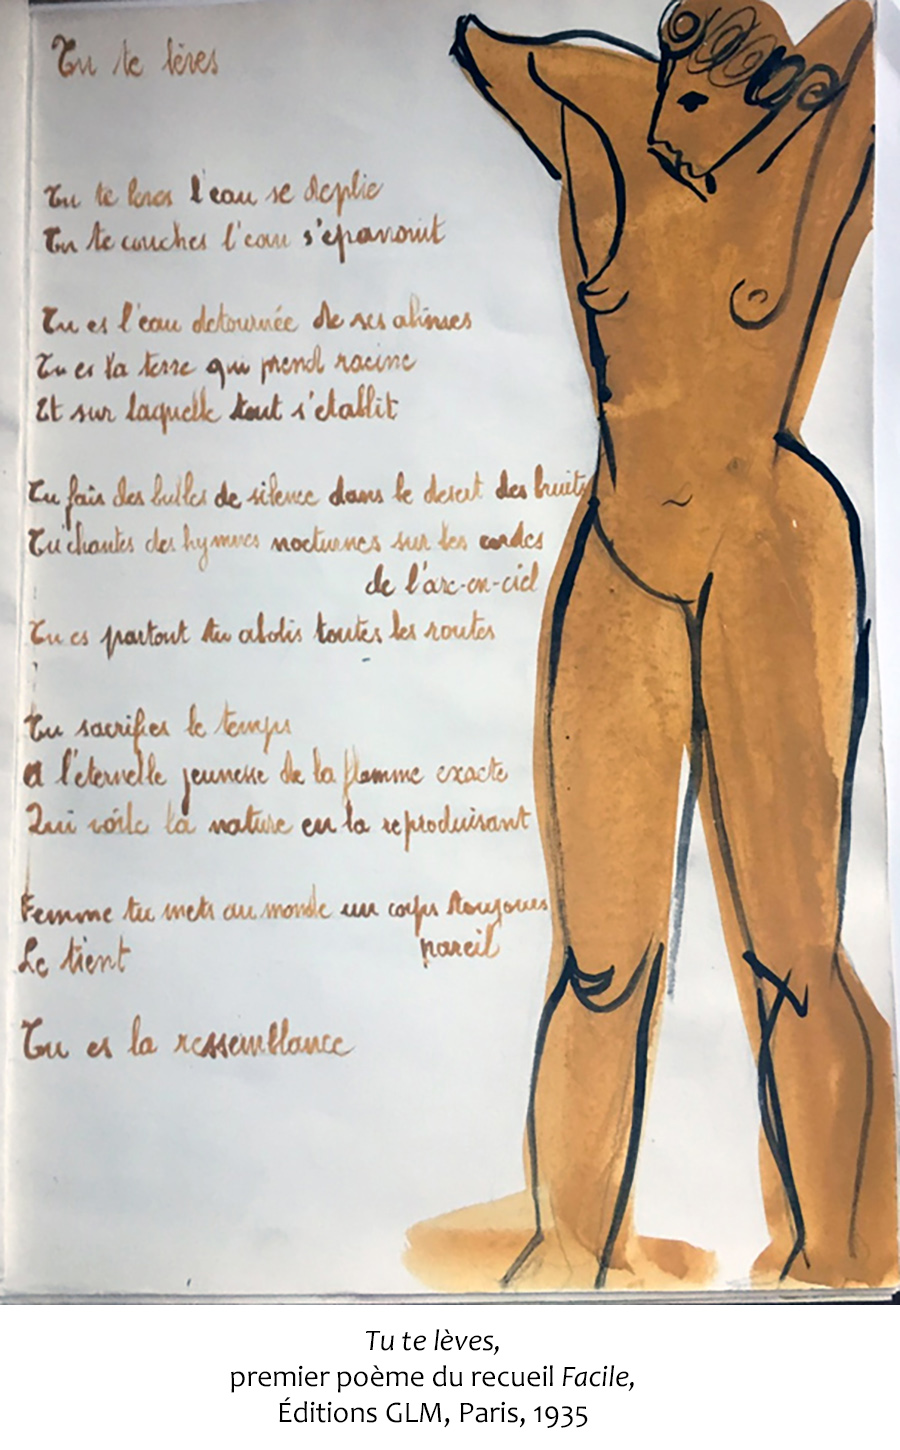 Tu te lèves
Tu te leves l'eau se deplie
Tu te couches l'eau s'epanouit
Tu es l'eau detournée de ses abimes
Tu es la terre qui prend racine
Et sur laquelle tout s'etablit
Tu fais des bulles de silence dans le desert des bruits
Tu chantes des hymnes nocturnes sur les cordes
de l'arc-en-ciel
Tu es partout tu abolis toutes les routes
Tu sacrifies le temps
A l'eternelle jeunesse de la flamme exacte
Qui voile la nature en la reproduisant
Femme tu mets au monde un corps toujours
pareil
Le tient
Tu es la ressemblance
Tu te lèves,
premier poème du recueil Facile,
Éditions GLM, Paris, 1935